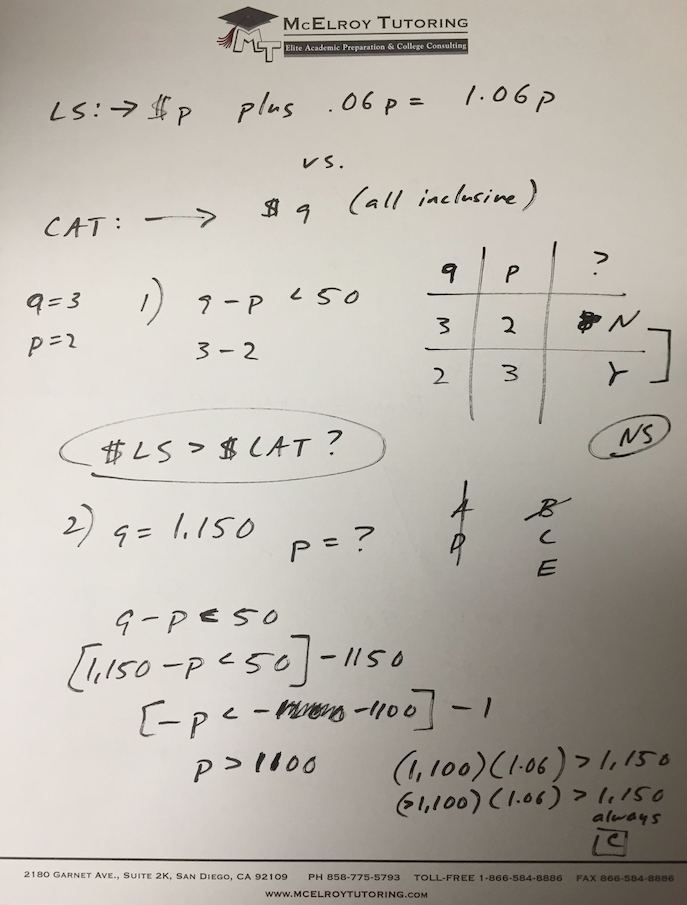 McElroy Tutoring
MT
Elite Academic Preparation & College Consulting
LS: → $p plus .06p = 1.06p
vs.
CAT: → $ q (all inclusive)
q p ?
q=3 1) q - p < 50
3 2 N
p=2 3 - 2
2 3 Y
NS
$LS > $CAT?
2) q = 1,150 p = ?
A B
D C
E
q - p < 50
[1,150 - p < 50] - 1150
[-p < -1100] - 1
p > 1100 (1,100)(1.06) > 1,150
(>1,100)(1.06) > 1,150
always
C
2180 Garnet Ave., Suite 2K, San Diego, CA 92109 PH 858-775-5793 Toll-Free 1-866-584-8886 Fax 866-584-8886
www.McElroyTutoring.com